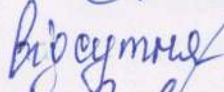 відсутня